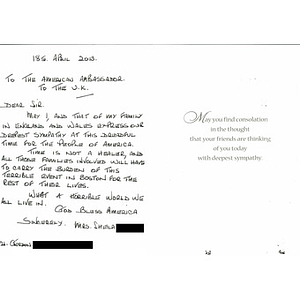 18th April 2013.
To The American Ambassador
To The U.K.
Dear Sir.
May I, and that of my family
in England and Wales express our
deepest sympathy at this dreadful
time for the people of America.
Time is not a healer, and
all those families involved will have
to carry the burden of this
terrible event in Boston for the
rest of their lives.
What a horrible world we
all live in.
God Bless America
Sincerely.
Mrs. Sheila
May you find consolation
in the thought
that your friends are thinking
of you today
with deepest sympathy.